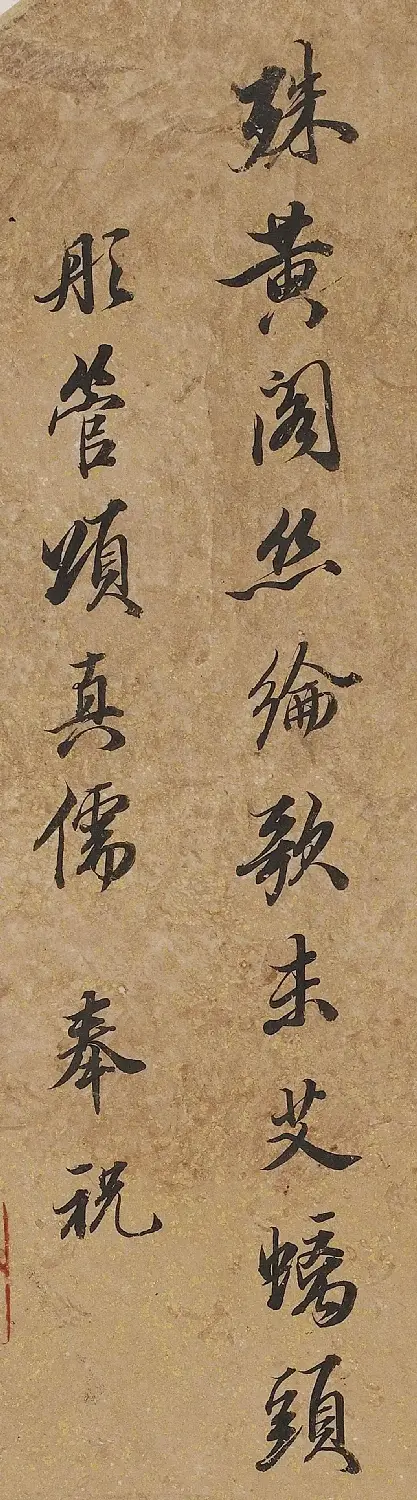 殊黄阁丝纶歌未艾螭頭
彤管頌真儒 奉祝